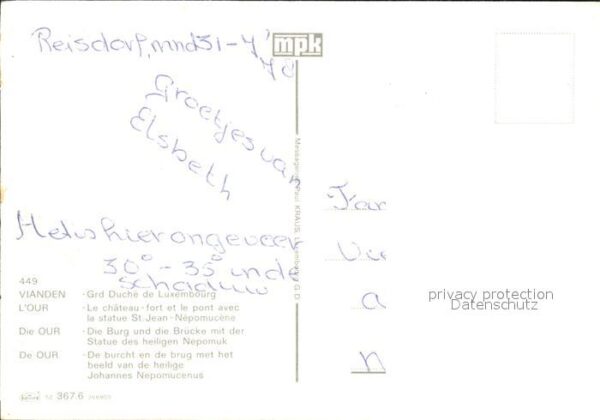 Reisdorf, mnd 31-7'
78
mpk
Groetjes van
Elsbeth
Het is hier ongeveer
30° - 35° in de
schaduw
Messageries Paul KRAUS, Luxembourg G.D.
Fam
449
VIANDEN - Grd Duché de Luxembourg
L'OUR - Le château-fort et le pont avec
la statue St. Jean-Népomucène
Die OUR - Die Burg und die Brücke mit der
Statue des heiligen Nepomuk
De OUR - De burcht en de brug met het
beeld van de heilige
Johannes Nepomucenus
367.6
privacy protection
Datenschutz